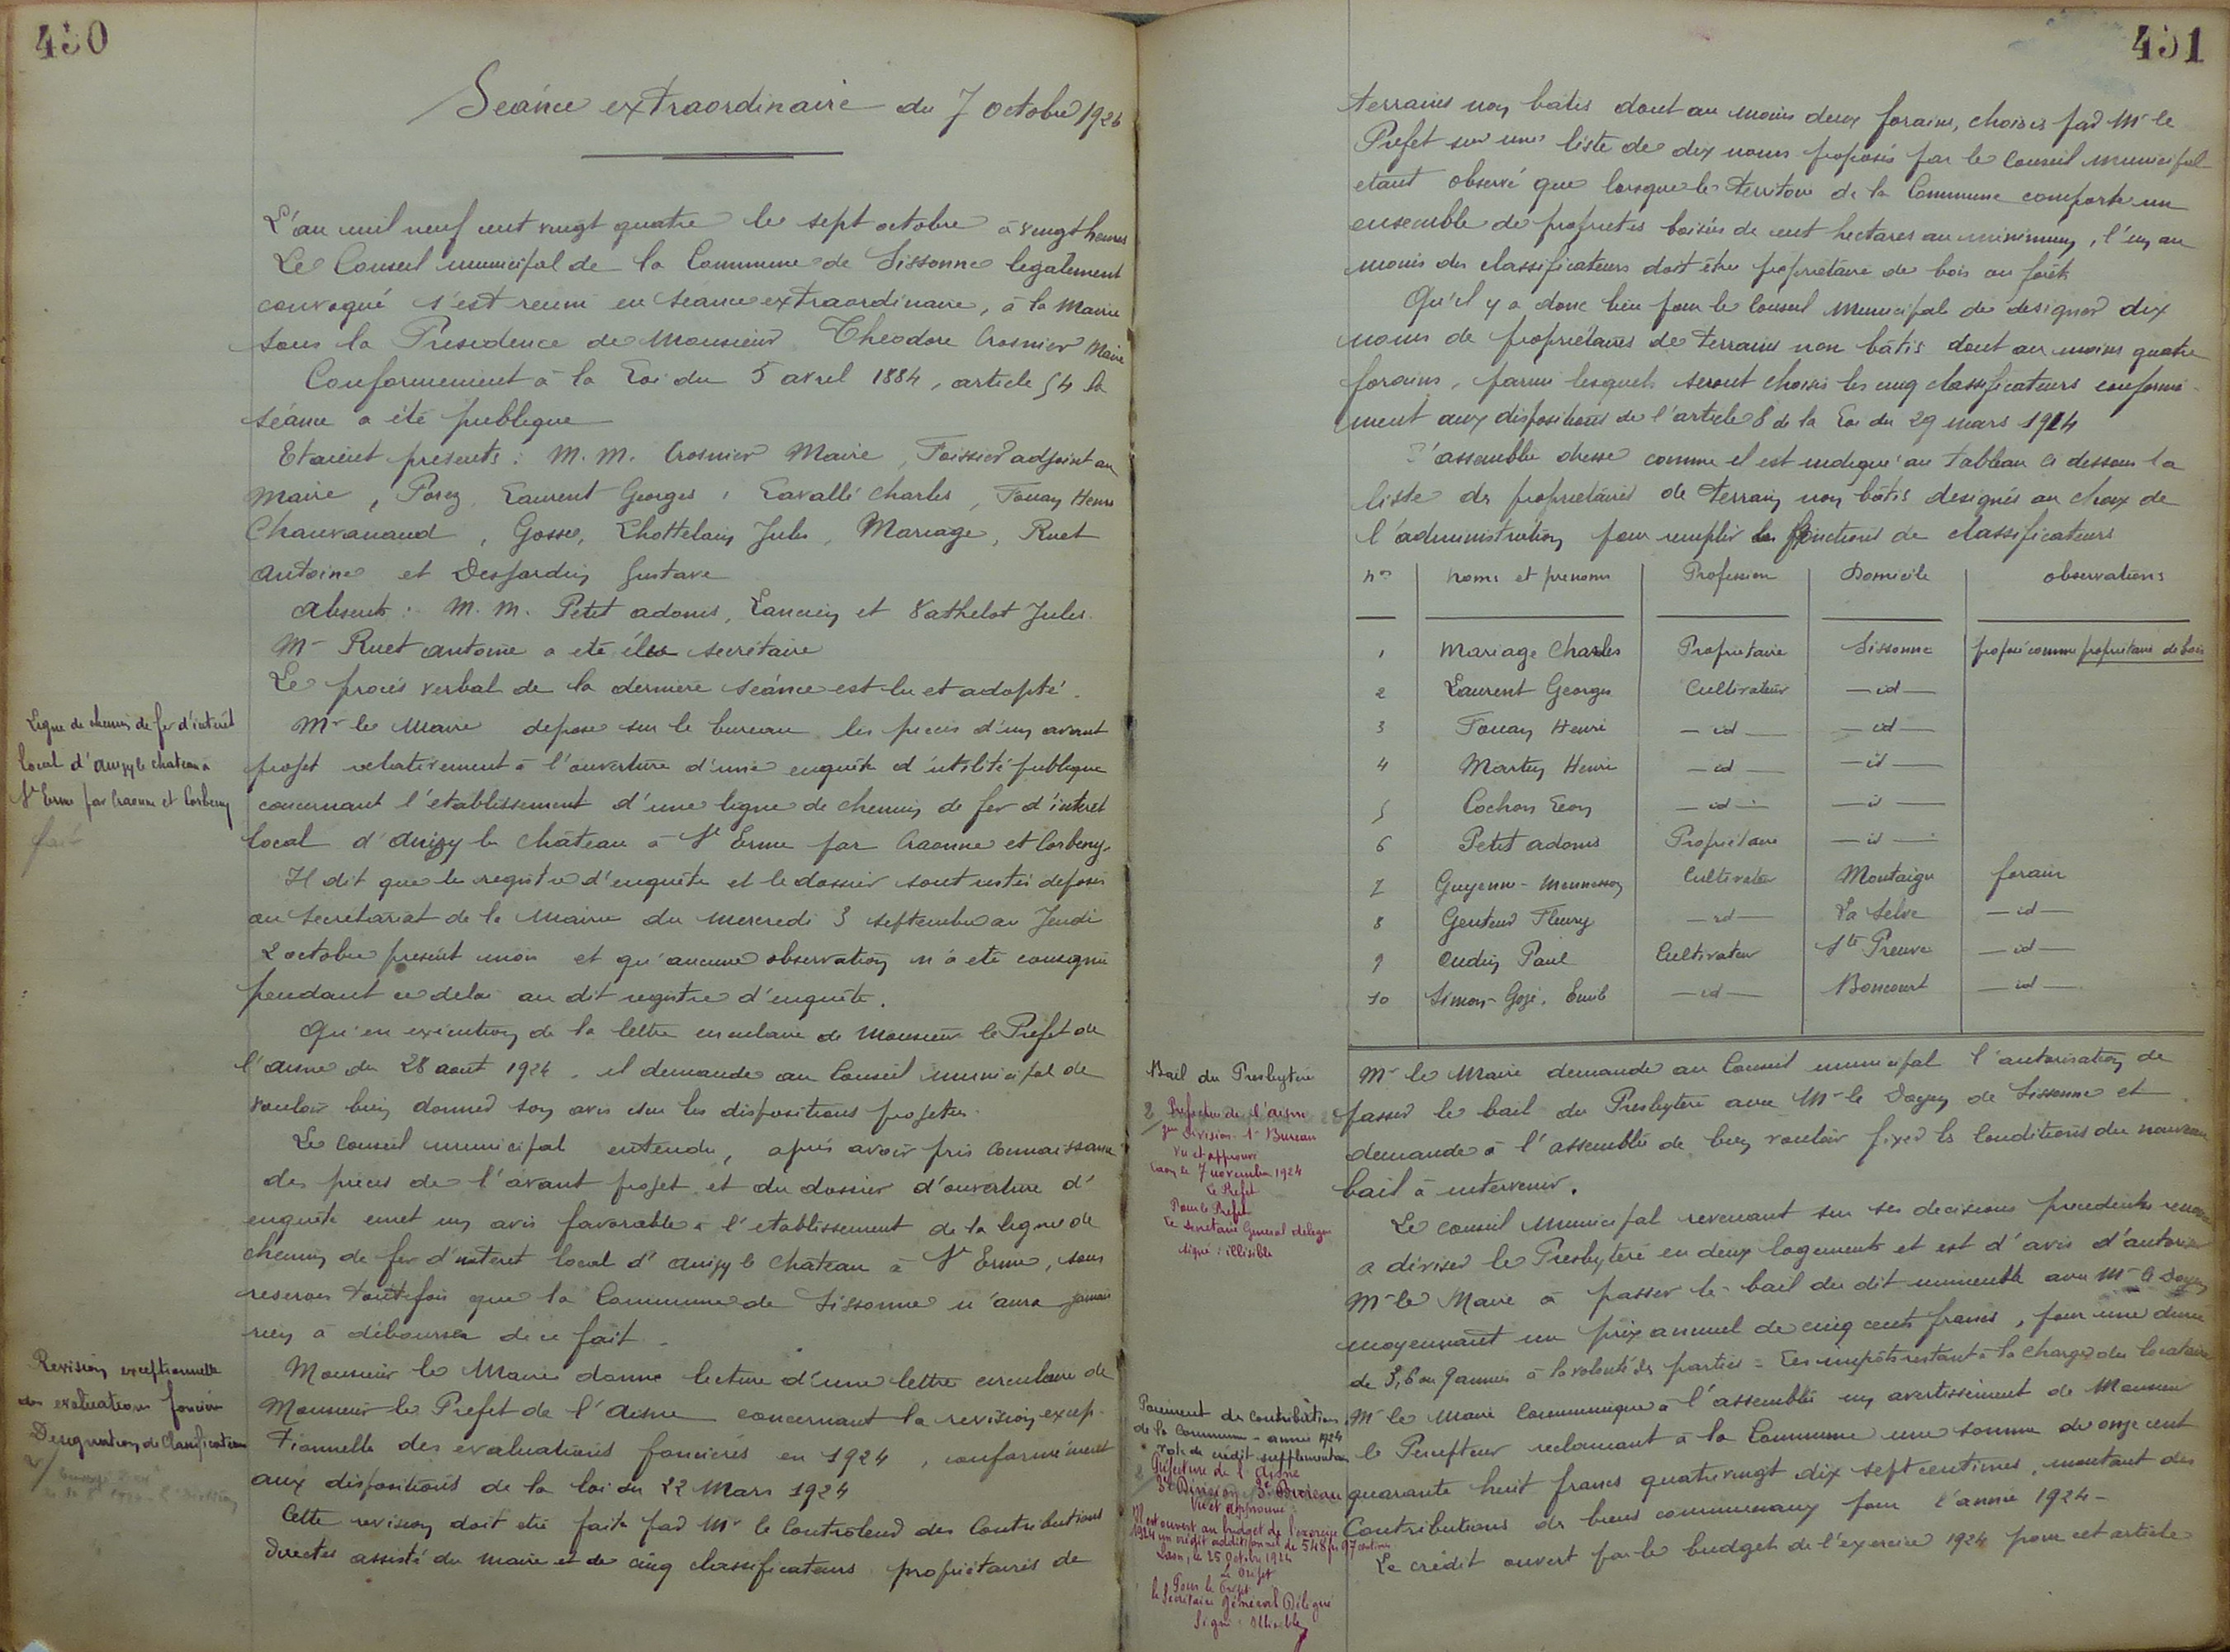 430
Seánce extraordinaire du 7 octobre 1924
L'an mil neuf cent vingt quatre le sept octobre à vingt heures
Le Conseil municipal de la Commune de Sissonne legalement
convoqué s'est reuni en séance extraordinaire, à la Mairie
sous la Presidence de Monsieur Theodore Crosnier Maire
Conformement à la Loi du 5 avril 1884, article 54 la
séance a été publique
Etaient presents : M.M. Crosnier Maire, Foissier adjoint au
maire, Porez, Laurent Georges, Lavallé Charles, Fouan Henri
Chauvanaud, Gosse, Lhottelain Jules, Mariage, Ruet
Antoine et Desjardin Gustave
Absents : M.M. Petit adonis, Lancien et Vathelot Jules.
Mr Ruet antoine a eté élu secrétaire
Le procés verbal de la derniere seánce est lu et adopté.
Ligne de chemin de fer d'intérêt
local d'anizy le chateau à
St Erme par Craonne et Corbeny
fait
Mr le Maire depose sur le bureau les pieces d'un avant
projet relativement à l'ouverture d'une enquête d'utilité publique
concernant l'etablissement d'une ligne de chemin de fer d'interet
local d'Anizy le château à St Erme par Craonne et Corbeny.
Il dit que le registre d'enquête et le dossier sont restés deposés
au secretariat de la Mairie du Mercredi 3 septembre au Jeudi
2 octobre present mois et qu'aucune observation n'a eté consignée
pendant ce delai au dit registre d'enquête.
Qu'en execution de la lettre circulaire de Monsieur le Prefet de
l'aisne du 28 aout 1924, il demande au Conseil municipal de
vouloir bien donner son avis sur les dispositions projetées.
Le Conseil municipal entendu, aprés avoir pris connaissance
des pieces de l'avant projet et du dossier d'ouverture d'
enquête emet un avis favorable à l'etablissement de la ligne de
chemin de fer d'interet local d'Anizy le château à St Erme, sous
reserves toutefois que la Commune de Sissonne n'aura jamais
rien à débourser de ce fait.
Revision exceptionnelle
des evaluations foncieres
Designation de Classificateurs
Monsieur le Maire donne lecture d'une lettre circulaire de
Monsieur le Prefet de l'aisne concernant la revision excep-
tionnelle des evaluations foncieres en 1924, conformément
aux dispositions de la loi du 22 Mars 1924
Cette revision doit etre faite par Mr le Controleur des Contributions
Directes assisté du maire et de cinq classificateurs propriétaires de
431
terrains non batis dont au moins deux forains, choisis par Mr le
Prefet sur une liste de dix noms proposés par le Conseil municipal
etant observé que lorsque le territoire de la Commune comporte un
ensemble de proprietés boisées de cent hectares au minimum, l'un au
moins des classificateurs doit être propriétaire de bois ou forêt
Qu'il y a donc lieu pour le Conseil Municipal de designer dix
noms de propriétaires de terrains non bâtis dont au moins quatre
forains, parmi lesquels seront choisis les cinq classificateurs conformé-
ment aux dispositions de l'article 8 de la Loi du 29 mars 1914
L'assemblée dresse comme il est indiqué au tableau ci dessous la
liste des propriétaires de terrain non bâtis designés au choix de
l'administration pour remplir les fonctions de classificateurs
nos noms et prenoms Profession Domicile observations
1 Mariage Charles Propriétaire Sissonne proposé comme proprietaire de bois
2 Laurent Georges Cultivateur — id —
3 Fouan Henri — id — — id —
4 Martin Henri — id — — id —
5 Cochon Leon — id — — id —
6 Petit adonis Propriétaire — id —
7 Guyenne-Mennesson Cultivateur Montaigu forain
8 Genteur Fleury — id — La Selve — id —
9 Oudin Paul Cultivateur Ste Preuve — id —
10 Simon-Gozé, Emile — id — Boncourt — id —
Bail du Presbytère
2 Prefecture de l'aisne
Division 1er Bureau
Vu et approuvé
Laon le 7 novembre 1924
Le Prefet
Pour le Prefet
Le Secretaire General delegué
Signé : illisible
Mr le Maire demande au Conseil municipal l'autorisation de
passer le bail du Presbytère avec Mr le Doyen de Sissonne et
demande à l'assemblée de bien vouloir fixer les Conditions du nouveau
bail à intervenir.
Le conseil Municipal revenant sur ses decisions precedentes renonce
a diviser le Presbytère en deux logements et est d'avis d'autoriser
Mr le Maire à passer le bail du dit immeuble avec Mr le Doyen
moyennant un prix annuel de cinq cents francs, pour une durée
de 3, 6 ou 9 années à la volonté des parties - Les impôts restant à la charge du locataire
Paiement de contributions
de la Commune - année 1924
vote de crédit supplementaire
2 Préfecture de l'Aisne
3e Division 3e Bureau
Vu et approuvé
Il est ouvert au budget de l'exercice
1924 un crédit additionnel de 548 frs 97 centimes
Laon, le 25 Octobre 1924
Le Préfet
Pour le Préfet
le Secrétaire Général Délégué
Signé : Illisible
Mr le Maire Communique à l'assemblée un avertissement de Monsieur
le Percepteur reclamant à la Commune une somme de onze cent
quarante huit francs quatrevingt dix sept centimes, montant des
Contributions des biens communaux pour l'année 1924 -
Le crédit ouvert par le budget de l'exercice 1924 pour cet article